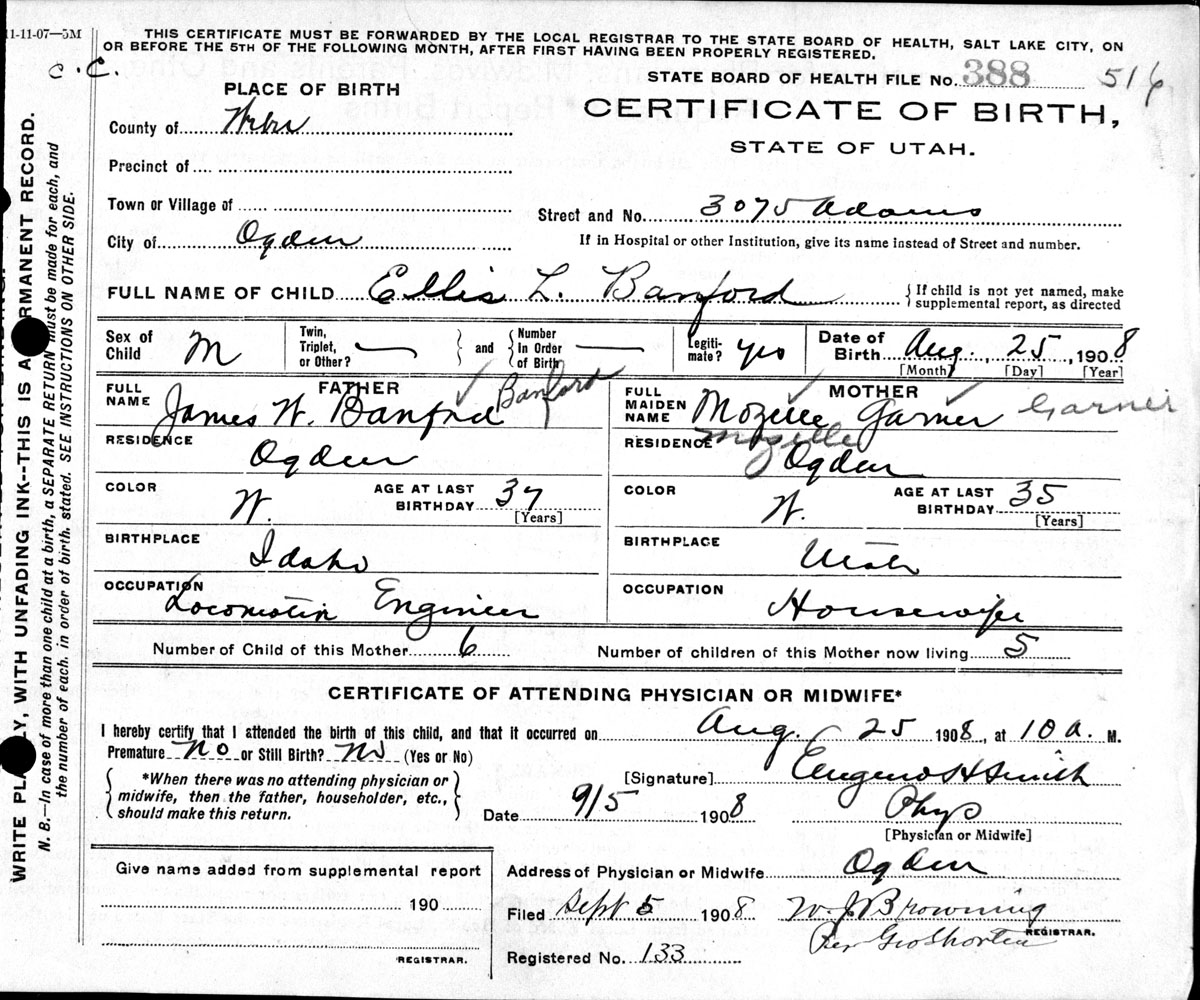 11-11-07—5M
THIS CERTIFICATE MUST BE FORWARDED BY THE LOCAL REGISTRAR TO THE STATE BOARD OF HEALTH, SALT LAKE CITY, ON
OR BEFORE THE 5TH OF THE FOLLOWING MONTH, AFTER FIRST HAVING BEEN PROPERLY REGISTERED.
C. C.
STATE BOARD OF HEALTH FILE No. 388 516
PLACE OF BIRTH
CERTIFICATE OF BIRTH,
STATE OF UTAH.
County of Weber
Precinct of
Town or Village of
Street and No. 3075 Adams
City of Ogden
If in Hospital or other Institution, give its name instead of Street and number.
FULL NAME OF CHILD Ellis L. Banford
{ If child is not yet named, make
supplemental report, as directed
Sex of Child M
Twin, Triplet, or Other? —
and
Number In Order of Birth —
Legiti-mate? yes
Date of Birth Aug., 25, 1908
[Month] [Day] [Year]
FATHER
FULL NAME James W. Banford Banford
MOTHER
FULL MAIDEN NAME Mozelle Garner Garner
Mozelle
RESIDENCE Ogden
RESIDENCE Ogden
COLOR W. AGE AT LAST BIRTHDAY 37 [Years]
COLOR W. AGE AT LAST BIRTHDAY 35 [Years]
BIRTHPLACE Idaho
BIRTHPLACE Utah
OCCUPATION Locomotiv Engineer
OCCUPATION Housewife
Number of Child of this Mother 6 Number of children of this Mother now living 5
CERTIFICATE OF ATTENDING PHYSICIAN OR MIDWIFE*
I hereby certify that I attended the birth of this child, and that it occurred on Aug. 25 1908, at 10 a. M.
Premature No or Still Birth? No (Yes or No)
*When there was no attending physician or
midwife, then the father, householder, etc.,
should make this return.
[Signature] Eugene H Smith
Date 9/5 1908 Phys
[Physician or Midwife]
Address of Physician or Midwife Ogden
Give name added from supplemental report
190
REGISTRAR.
Filed Sept 5 1908 W. J. Browning
REGISTRAR.
Per Geo Shorten
Registered No. 133
WRITE PLAINLY, WITH UNFADING INK--THIS IS A PERMANENT RECORD.
N. B.—In case of more than one child at a birth, a SEPARATE RETURN must be made for each, and
the number of each, in order of birth, stated. SEE INSTRUCTIONS ON OTHER SIDE.